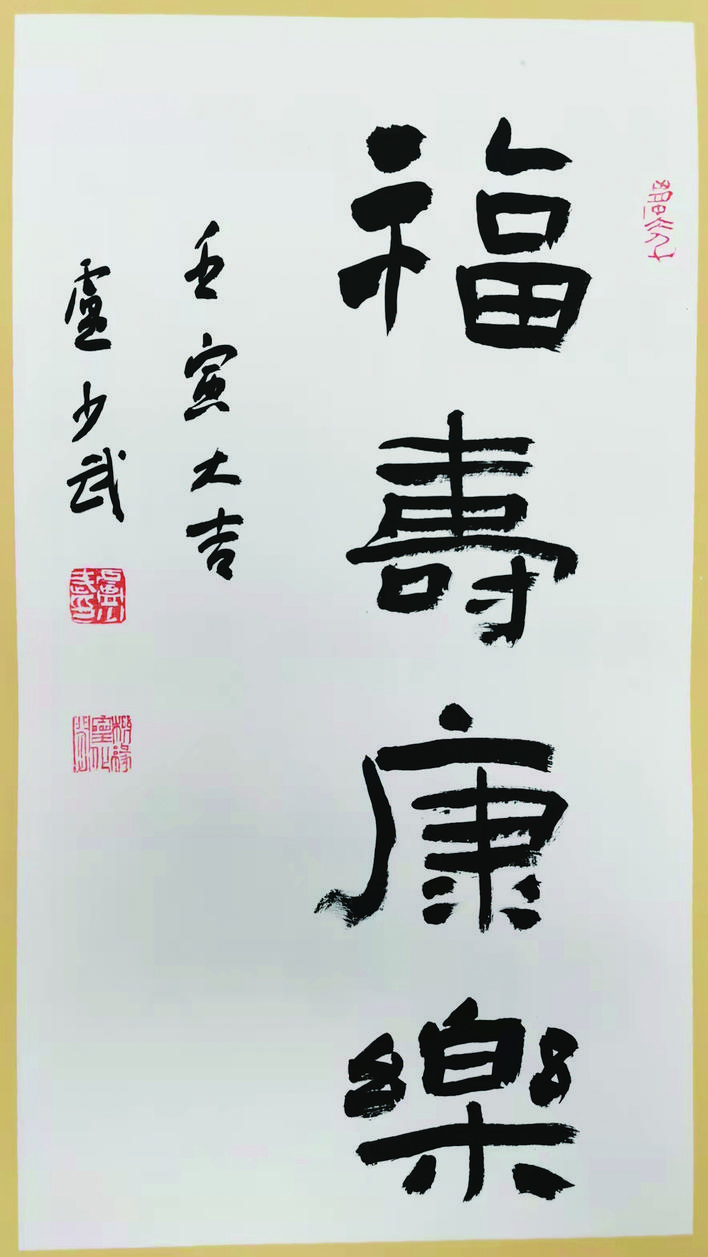 福壽康樂
壬寅大吉
盧少武